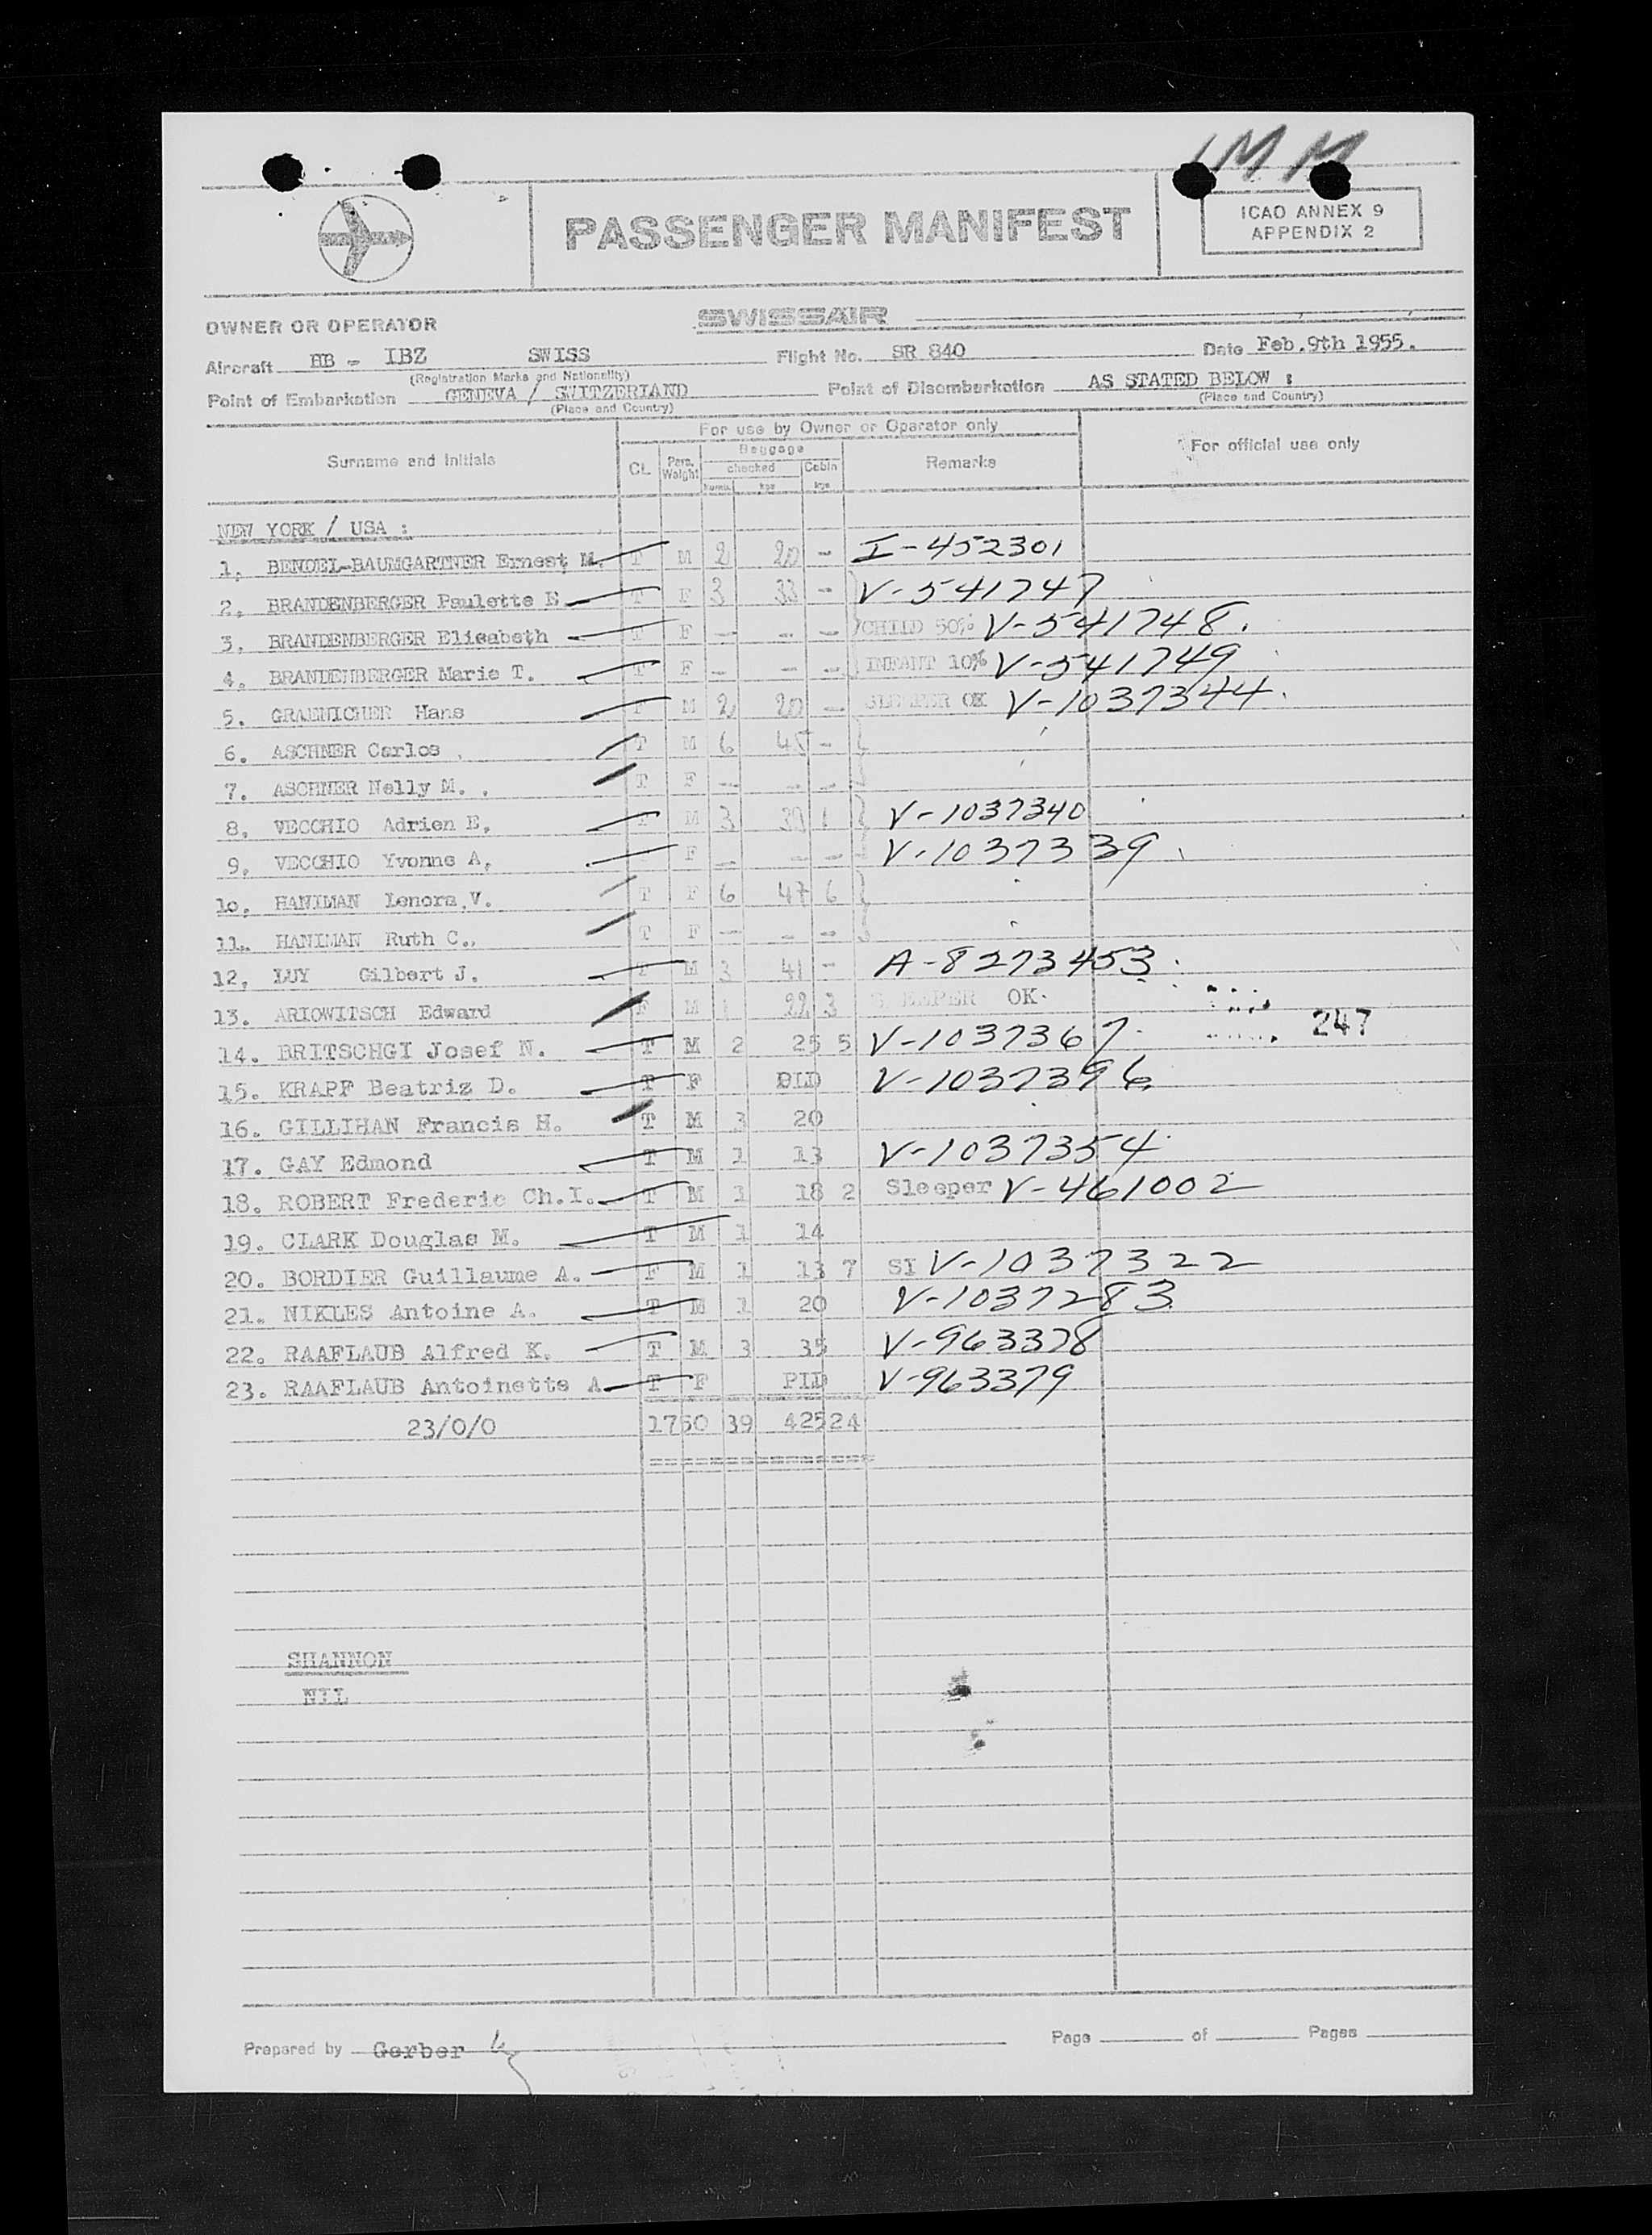 MM
PASSENGER MANIFEST
ICAO ANNEX 9
APPENDIX 2
OWNER OR OPERATOR SWISSAIR
Aircraft HB - IBZ SWISS Flight No. SR 840 Date Feb.9th 1955.
(Registration Marks and Nationality)
Point of Embarkation GENEVA / SWITZERLAND Point of Disembarkation AS STATED BELOW :
(Place and Country) (Place and Country)
For use by Owner or Operator only
Surname and Initials CL Pass. Weight Baggage Remarks For official use only
checked Cabin
kgs kgs
NEW YORK / USA :
1. BENDEL-BAUMGARTNER Ernest M. T M 2 20 - I-452301
2. BRANDENBERGER Paulette E T F 3 33 - V-541747
3. BRANDENBERGER Elisabeth T F - - - CHILD 50% V-541748.
4. BRANDENBERGER Marie T. T F - - - INFANT 10% V-541749
5. Hans F M 2 20 - SLEEPER OK V-1037344.
6. ASCHNER Carlos T M 6 45 -
7. ASCHNER Nelly M. T F - - -
8. VECCHIO Adrien E. T M 3 39 1 V-1037340
9. VECCHIO Yvonne A. F - - - V-1037339
10. HANIMAN Lenora V. T F 6 47 6
11. HANIMAN Ruth C. T F - - -
12. LUY Gilbert J. T M 3 41 - A-8273453
13. ARIOWITSCH Edward F M 1 22 3 SLEEPER OK.
247
14. BRITSCHGI Josef N. T M 2 25 5 V-1037367
15. KRAPF Beatriz D. T F V-1037396
16. GILLIHAN Francis H. T M 3 20
17. GAY Edmond T M 1 13 V-1037354
18. ROBERT Frederic Ch.I. T M 1 18 2 Sleeper V-461002
19. CLARK Douglas M. T M 1 14
20. BORDIER Guillaume A. F M 1 13 7 SI V-1037322
21. NIKLES Antoine A. T M 1 20 V-1037283
22. RAAFLAUB Alfred K. T M 3 35 V-963378
23. RAAFLAUB Antoinette A T F PLD V-963379
23/0/0 1760 39 425 24
===============
SHANNON
NIL
Prepared by Gerber Page of Pages